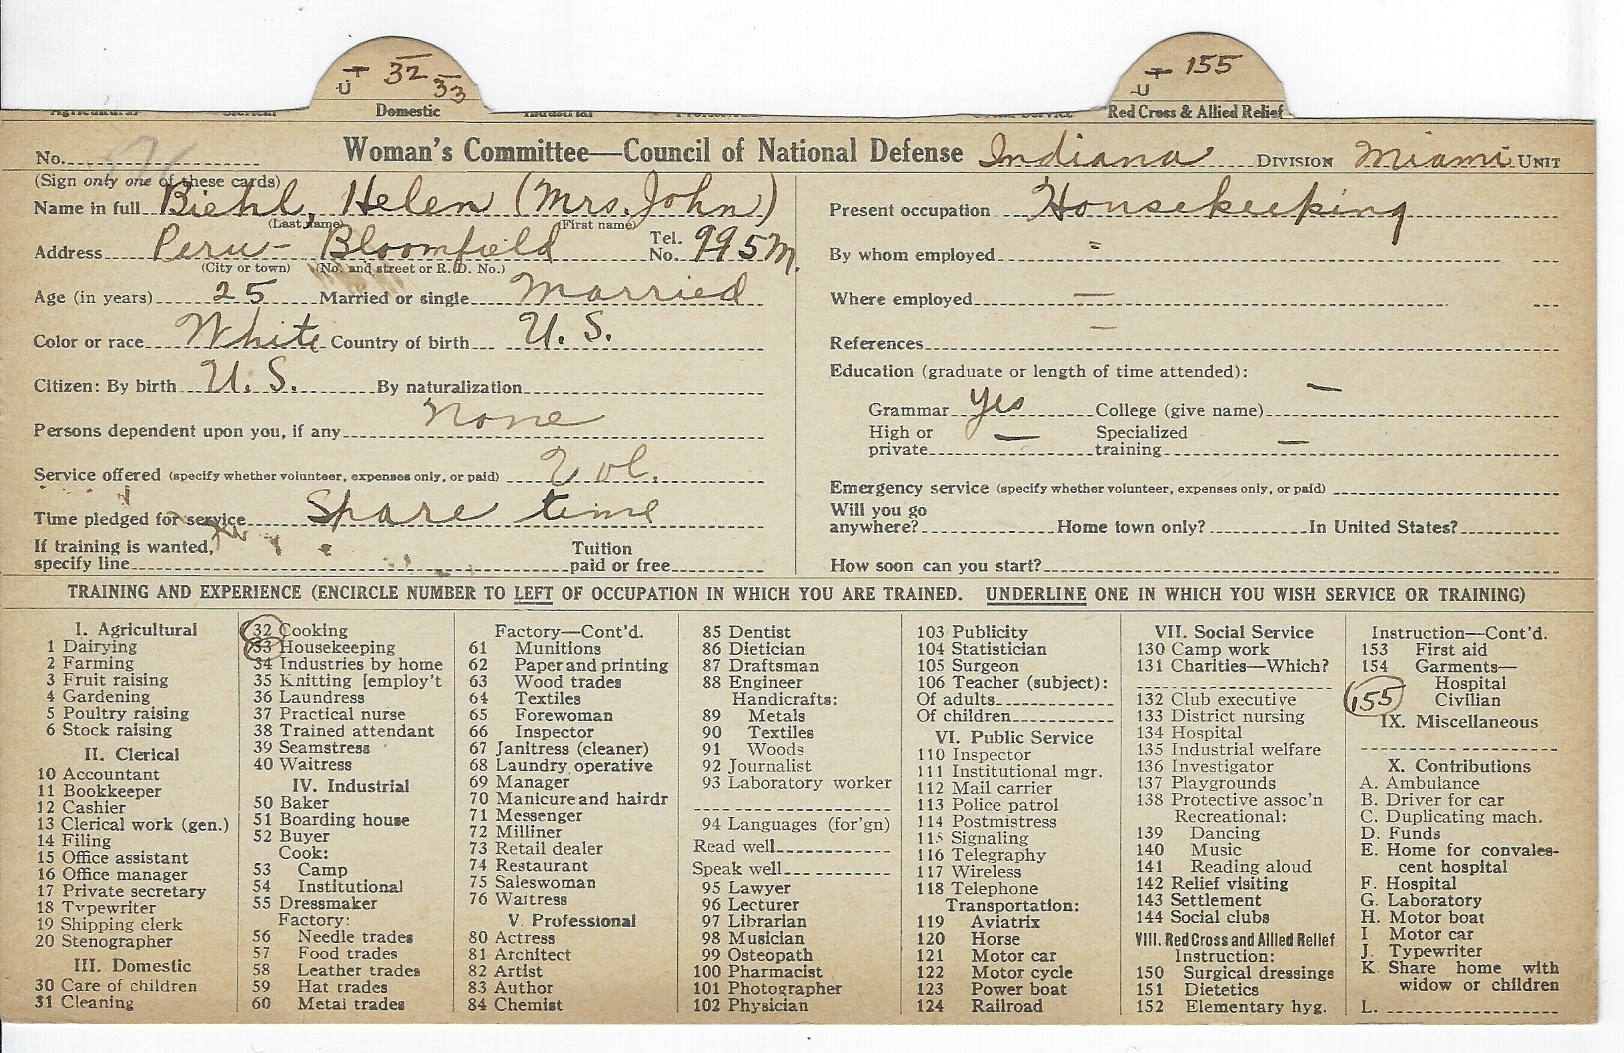 T U 32 33
T U 155
Domestic
Red Cross & Allied Relief
No. Woman's Committee—Council of National Defense Indiana DIVISION Miami UNIT
(Sign only one of these cards)
Name in full Biehl, Helen (Mrs. John)
(Last name) (First name)
Address Peru - Bloomfield Tel. No. 995M.
(City or town) (No. and street or R. D. No.)
Age (in years) 25 Married or single Married
Color or race White Country of birth U. S.
Citizen: By birth U. S. By naturalization
Persons dependent upon you, if any None
Service offered (specify whether volunteer, expenses only, or paid) Vol.
Time pledged for service Spare time
If training is wanted, specify line Tuition paid or free
Present occupation Housekeeping
By whom employed "
Where employed —
References —
Education (graduate or length of time attended):
Grammar yes College (give name) —
High or private — Specialized training —
Emergency service (specify whether volunteer, expenses only, or paid)
Will you go anywhere? Home town only? In United States?
How soon can you start?
TRAINING AND EXPERIENCE (ENCIRCLE NUMBER TO LEFT OF OCCUPATION IN WHICH YOU ARE TRAINED. UNDERLINE ONE IN WHICH YOU WISH SERVICE OR TRAINING)
I. Agricultural
1 Dairying
2 Farming
3 Fruit raising
4 Gardening
5 Poultry raising
6 Stock raising
II. Clerical
10 Accountant
11 Bookkeeper
12 Cashier
13 Clerical work (gen.)
14 Filing
15 Office assistant
16 Office manager
17 Private secretary
18 Typewriter
19 Shipping clerk
20 Stenographer
III. Domestic
30 Care of children
31 Cleaning
32 Cooking
33 Housekeeping
34 Industries by home
35 Knitting [employ't
36 Laundress
37 Practical nurse
38 Trained attendant
39 Seamstress
40 Waitress
IV. Industrial
50 Baker
51 Boarding house
52 Buyer
Cook:
53 Camp
54 Institutional
55 Dressmaker
Factory:
56 Needle trades
57 Food trades
58 Leather trades
59 Hat trades
60 Metal trades
Factory—Cont'd.
61 Munitions
62 Paper and printing
63 Wood trades
64 Textiles
65 Forewoman
66 Inspector
67 Janitress (cleaner)
68 Laundry operative
69 Manager
70 Manicure and hairdr
71 Messenger
72 Milliner
73 Retail dealer
74 Restaurant
75 Saleswoman
76 Waitress
V. Professional
80 Actress
81 Architect
82 Artist
83 Author
84 Chemist
85 Dentist
86 Dietician
87 Draftsman
88 Engineer
Handicrafts:
89 Metals
90 Textiles
91 Woods
92 Journalist
93 Laboratory worker
94 Languages (for'gn)
Read well
Speak well
95 Lawyer
96 Lecturer
97 Librarian
98 Musician
99 Osteopath
100 Pharmacist
101 Photographer
102 Physician
103 Publicity
104 Statistician
105 Surgeon
106 Teacher (subject):
Of adults
Of children
VI. Public Service
110 Inspector
111 Institutional mgr.
112 Mail carrier
113 Police patrol
114 Postmistress
115 Signaling
116 Telegraphy
117 Wireless
118 Telephone
Transportation:
119 Aviatrix
120 Horse
121 Motor car
122 Motor cycle
123 Power boat
124 Railroad
VII. Social Service
130 Camp work
131 Charities—Which?
132 Club executive
133 District nursing
134 Hospital
135 Industrial welfare
136 Investigator
137 Playgrounds
138 Protective assoc'n
Recreational:
139 Dancing
140 Music
141 Reading aloud
142 Relief visiting
143 Settlement
144 Social clubs
VIII. Red Cross and Allied Relief
Instruction:
150 Surgical dressings
151 Dietetics
152 Elementary hyg.
Instruction—Cont'd.
153 First aid
154 Garments—
Hospital
155 Civilian
IX. Miscellaneous
X. Contributions
A. Ambulance
B. Driver for car
C. Duplicating mach.
D. Funds
E. Home for convales-
cent hospital
F. Hospital
G. Laboratory
H. Motor boat
I Motor car
J. Typewriter
K. Share home with
widow or children
L.